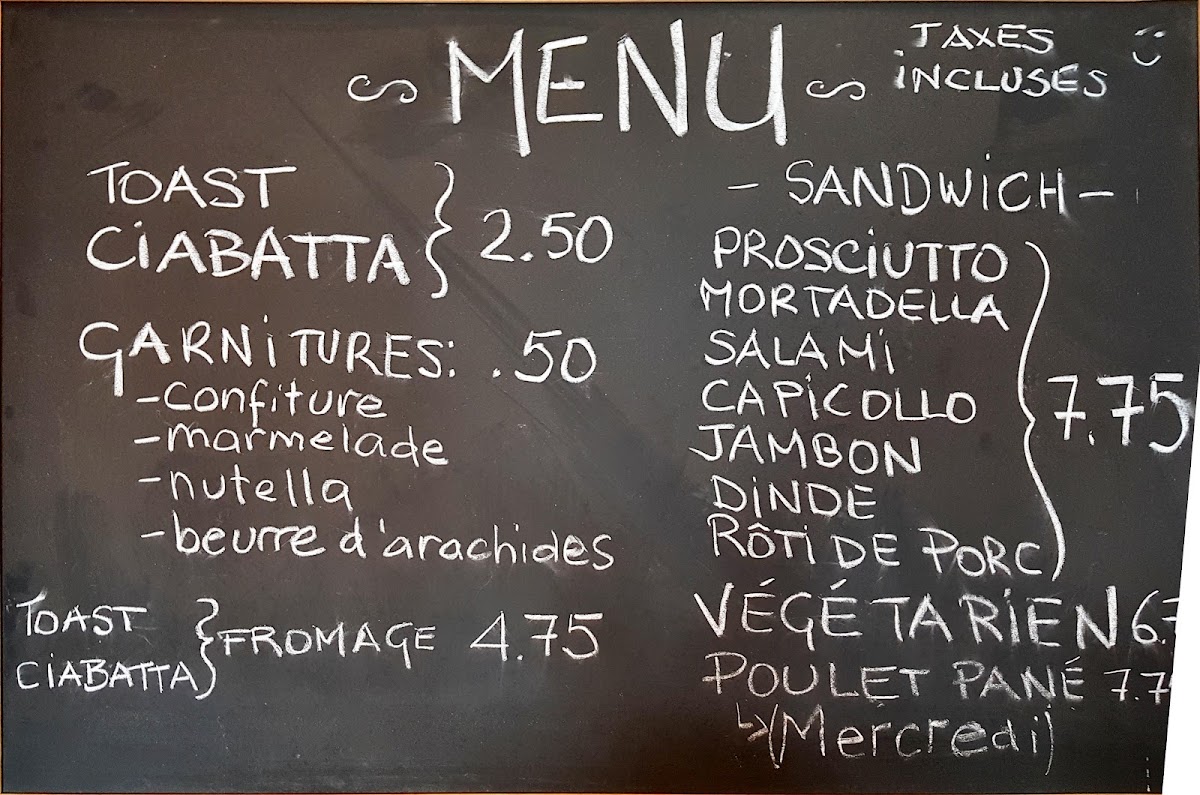 MENU
TAXES
INCLUSES
TOAST
CIABATTA
2.50
GARNITURES: .50
-confiture
-marmelade
-nutella
-beurre d'arachides
TOAST
CIABATTA
FROMAGE 4.75
- SANDWICH -
PROSCIUTTO
MORTADELLA
SALAMI
CAPICOLLO
JAMBON
DINDE
RÔTI DE PORC
7.75
VÉGÉTARIEN
POULET PANÉ
(Mercredi)